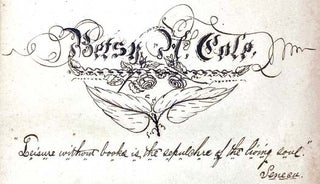 Betsy H. Cole.
"Leisure without books is the sepulchre of the living soul."
Seneca.